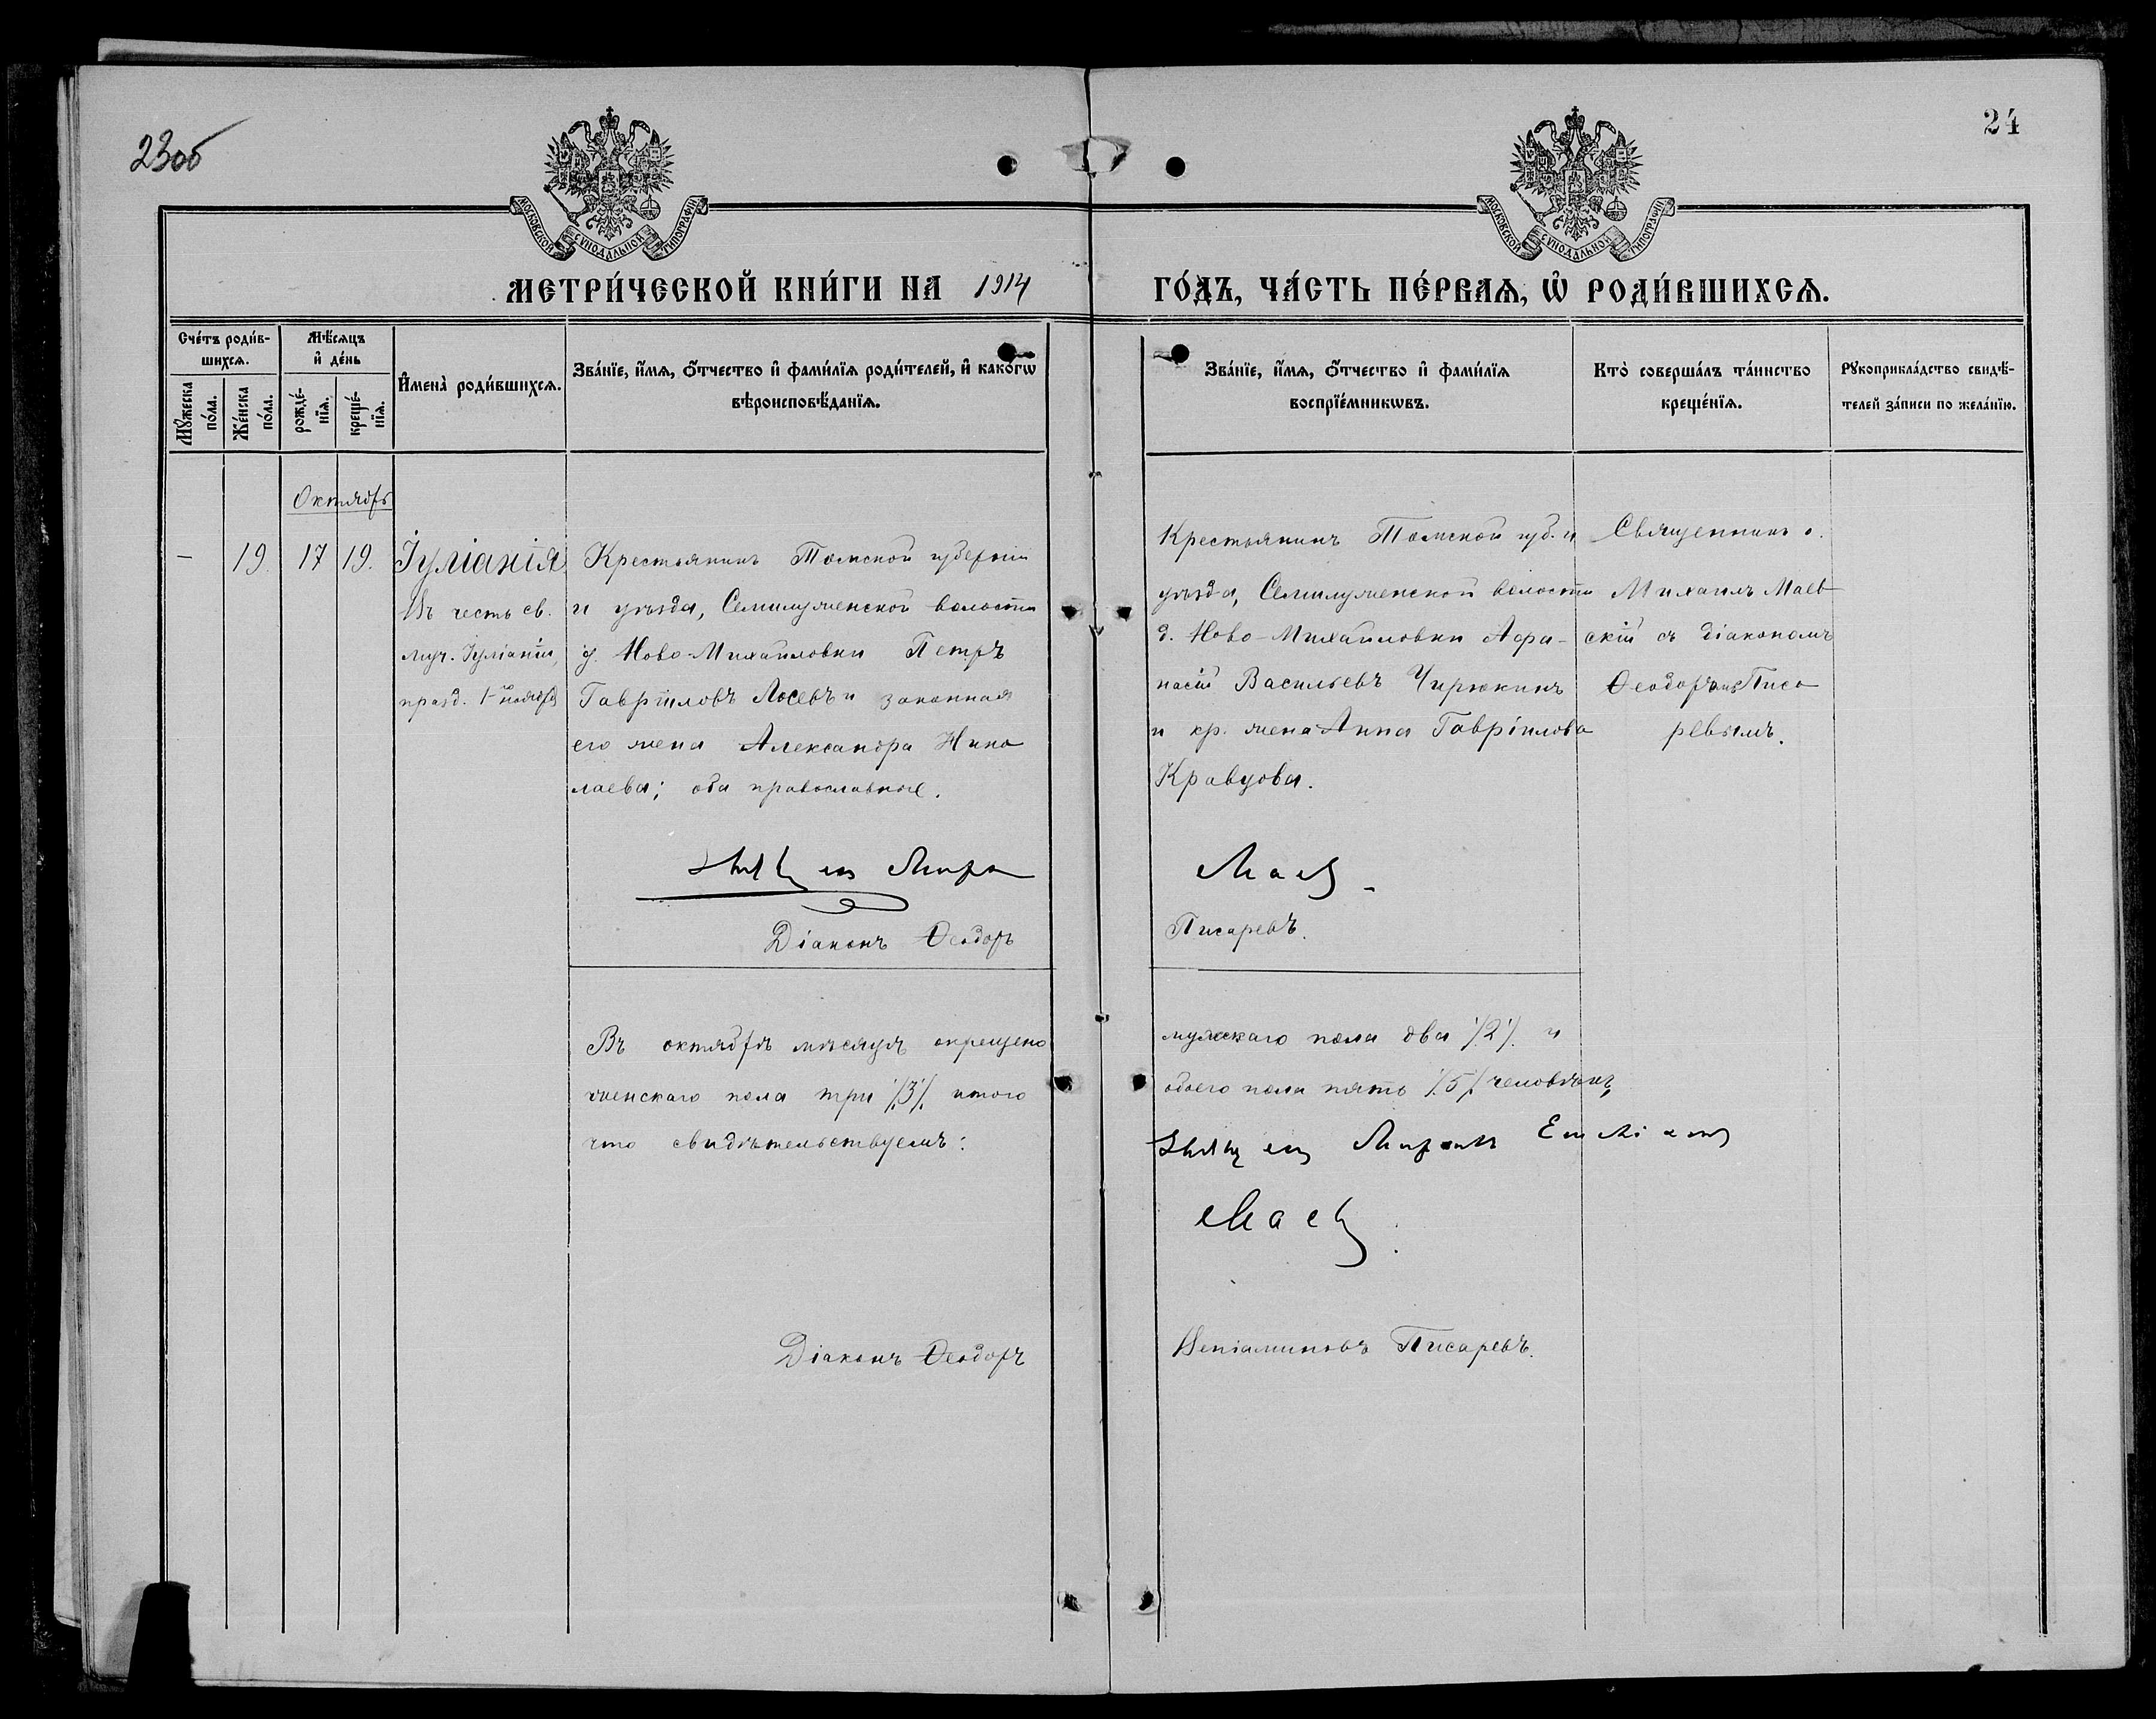 23об
24
МОСКОВСКОЙ СѴНОДАЛЬНОЙ ТИПОГРАФІИ
МОСКОВСКОЙ СѴНОДАЛЬНОЙ ТИПОГРАФІИ
МЕТРИ́ЧЕСКОЙ КНИ́ГИ НА 1914
ГО́ДЪ, ЧА́СТЬ ПЕ́РВАѦ, Ѡ҆ РОДИ́ВШИХСѦ.
Сче́тъ роди́в-
шихсѧ.
Мꙋ́жеска
по́ла.
Же́нска
по́ла.
Мѣ́сѧцъ
и҆ де́нь
рожде́-
нїѧ.
креще́-
нїѧ.
И҆мена̀ роди́вшихсѧ.
Зва́нїе, и҆́мѧ, ѻ҆́тчество и҆ фами́лїѧ роди́телей, и҆ како́гѡ
вѣроисповѣ́данїѧ.
Зва́нїе, и҆́мѧ, ѻ҆́тчество и҆ фами́лїѧ
воспрїе́мникѡвъ.
Кто̀ соверша́лъ та́инство
креще́нїѧ.
Рꙋкоприкла́дство свидѣ́-
телей за́писи по жела́нїю.
Октябрь
– 19. 17 19.
Іуліанія
Въ честь св.
муч. Іуліаніи,
празд. 1го ноября
Крестьянинъ Томской губерніи
и уѣзда, Семилуженской волости
д. Ново-Михайловки Петръ
Гавріиловъ Лосевъ и законная
его жена Александра Нико
лаева; оба православные.
Діаконъ Ѳеодоръ
Крестьянинъ Томской губ. и
уѣзда, Семилуженской волости
д. Ново-Михайловки Афа-
насій Васильевъ Чирюкинъ
и кр. жена Анна Гавріилова
Кравцова.
Маев
Писаревъ.
Священникъ о.
Михаилъ Маев
скій съ діакономъ
Ѳеодоромъ Писа
ревымъ.
Въ октябрѣ мѣсяцѣ окрещено
женскаго пола три /3/. итого
что свидѣтельствуемъ:
Діаконъ Ѳеодоръ
мужскаго пола два /2/. и
обоего пола пять /5/. человѣкъ,
Маев
Веніаминовъ Писаревъ.